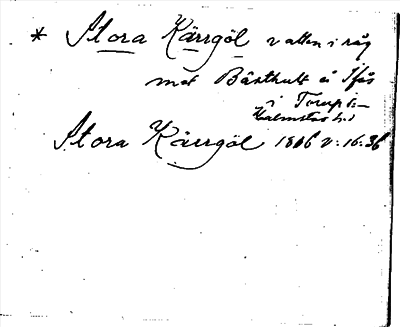 * Stora Kärrgöl vatten i råg
mot Bästhult å
i Torup s–
Halmstad h.d
Stora Kärrgöl 1806 v: 16: 36